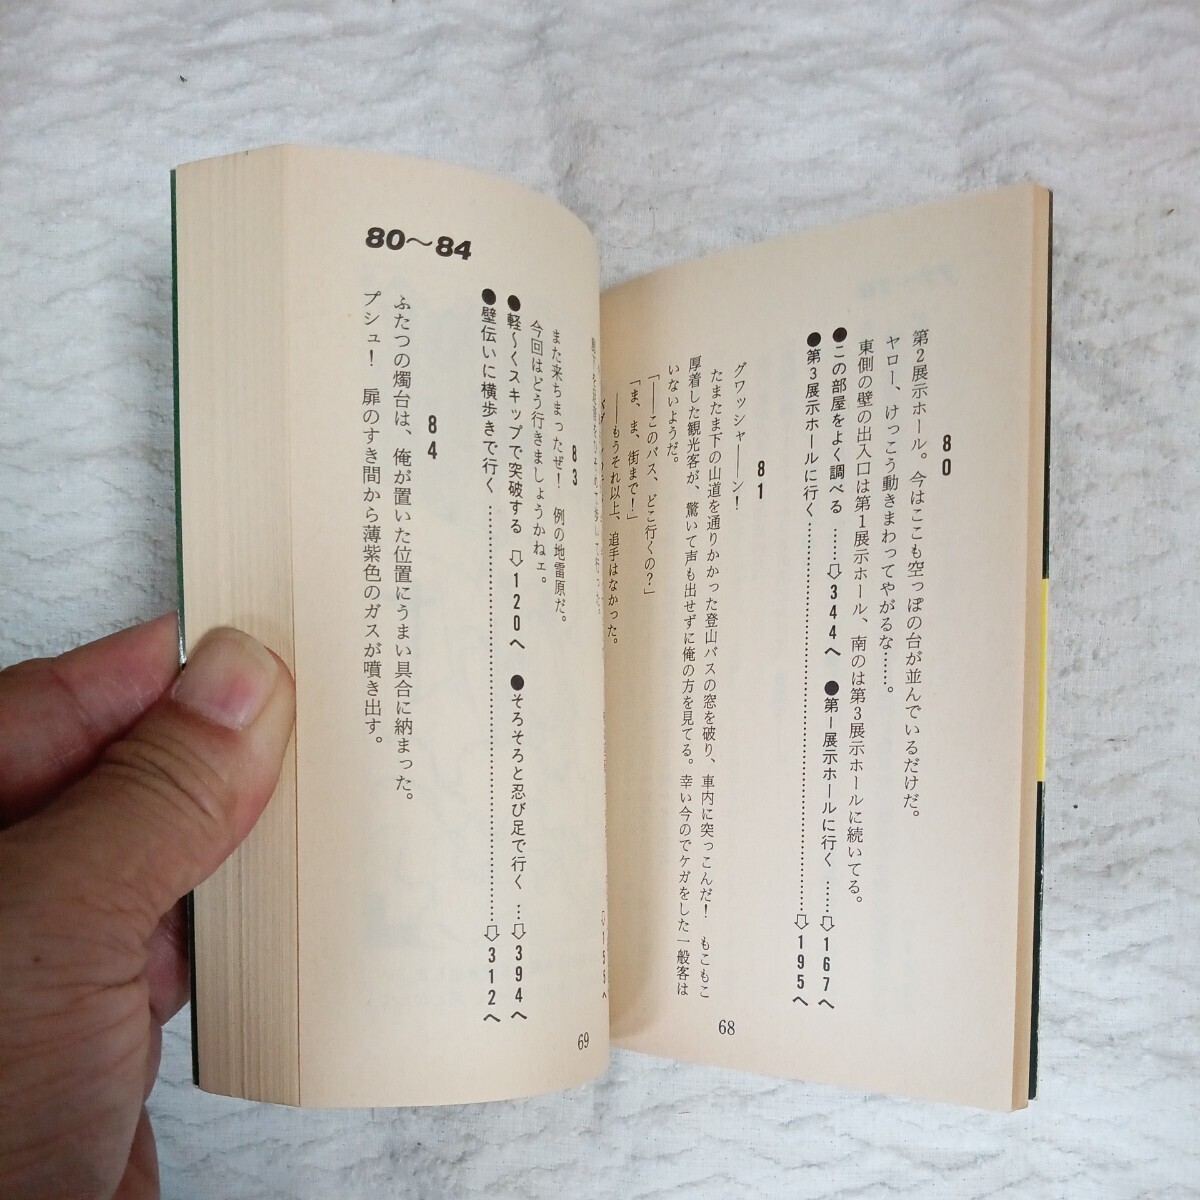 80
第2展示ホール。今はここも空っぽの台が並んでいるだけだ。
ヤロー、けっこう動きまわってやがるな……。
東側の壁の出入口は第1展示ホール、南のは第3展示ホールに続いてる。
●この部屋をよく調べる ……⇩344へ ●第1展示ホールに行く ……⇩167へ
●第3展示ホールに行く……………………………………⇩195へ
81
グワッシャーーン!
たまたま下の山道を通りかかった登山バスの窓を破り、車内に突っこんだ! もこもこ
厚着した観光客が、驚いて声も出せずに俺の方を見てる。幸い今のでケガをした一般客は
いないようだ。
「――このバス、どこ行くの?」
「ま、ま、街まで!」
――もうそれ以上、追手はなかった。
68
80〜84
⇩155へ
83
また来ちまったぜ! 例の地雷原だ。
今回はどう行きましょうかねェ。
●軽〜くスキップで突破する ⇩120へ ●そろそろと忍び足で行く …⇩394へ
●壁伝いに横歩きで行く……………………………………⇩312へ
84
ふたつの燭台は、俺が置いた位置にうまい具合に納まった。
プシュ! 扉のすき間から薄紫色のガスが噴き出す。
69